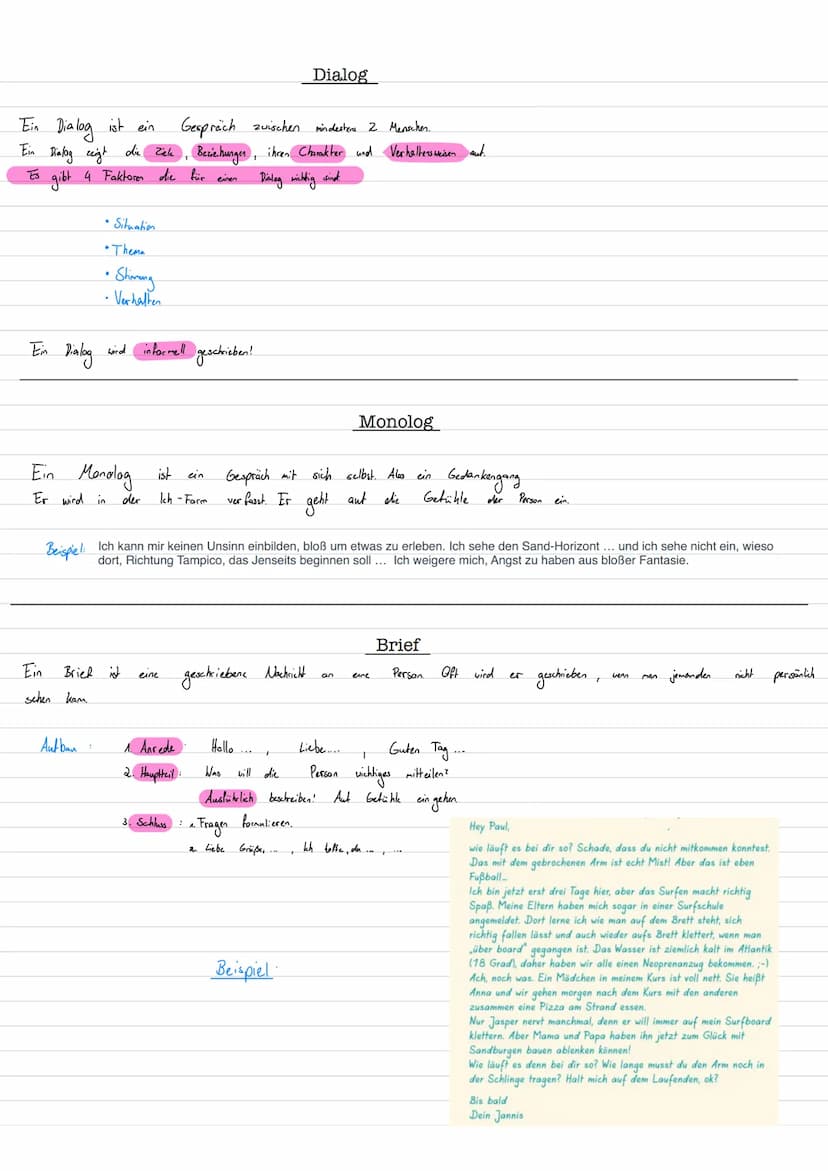 Dialog
Ein Dialog ist ein Gespräch zwischen mindestens 2 Menschen.
Ein Dialog zeigt die Ziele, Beziehungen, ihren Charakter und Verhaltensweisen auf.
Es gibt 4 Faktoren die für einen Dialog wichtig sind
• Situation
• Thema
• Stimmung
• Verhalten
Ein Dialog wird informell geschrieben!
Monolog
Ein Monolog ist ein Gespräch mit sich selbst. Also ein Gedankengang
Er wird in der Ich-Form verfasst. Er geht auf die Gefühle der Person ein.
Beispiel: Ich kann mir keinen Unsinn einbilden, bloß um etwas zu erleben. Ich sehe den Sand-Horizont … und ich sehe nicht ein, wieso
dort, Richtung Tampico, das Jenseits beginnen soll … Ich weigere mich, Angst zu haben aus bloßer Fantasie.
Brief
Ein Brief ist eine geschriebene Nachricht an eine Person. Oft wird er geschrieben, wenn man jemanden nicht persönlich
sehen kann.
Aufbau: 1. Anrede: Hallo ..., Liebe...., Guten Tag ...
2. Hauptteil: Was will die Person wichtiges mitteilen?
Ausführlich beschreiben! Auf Gefühle eingehen.
3. Schluss: 1. Fragen formulieren.
2. Liebe Grüße, ..., Ich hoffe, du ..., ...
Beispiel:
Hey Paul,
wie läuft es bei dir so? Schade, dass du nicht mitkommen konntest.
Das mit dem gebrochenen Arm ist echt Mist! Aber das ist eben
Fußball...
Ich bin jetzt erst drei Tage hier, aber das Surfen macht richtig
Spaß. Meine Eltern haben mich sogar in einer Surfschule
angemeldet. Dort lerne ich wie man auf dem Brett steht, sich
richtig fallen lässt und auch wieder aufs Brett klettert, wenn man
„über board" gegangen ist. Das Wasser ist ziemlich kalt im Atlantik
(18 Grad), daher haben wir alle einen Neoprenanzug bekommen. ;-)
Ach, noch was. Ein Mädchen in meinem Kurs ist voll nett. Sie heißt
Anna und wir gehen morgen nach dem Kurs mit den anderen
zusammen eine Pizza am Strand essen.
Nur Jasper nervt manchmal, denn er will immer auf mein Surfboard
klettern. Aber Mama und Papa haben ihn jetzt zum Glück mit
Sandburgen bauen ablenken können!
Wie läuft es denn bei dir so? Wie lange musst du den Arm noch in
der Schlinge tragen? Halt mich auf dem Laufenden, ok?
Bis bald
Dein Jannis